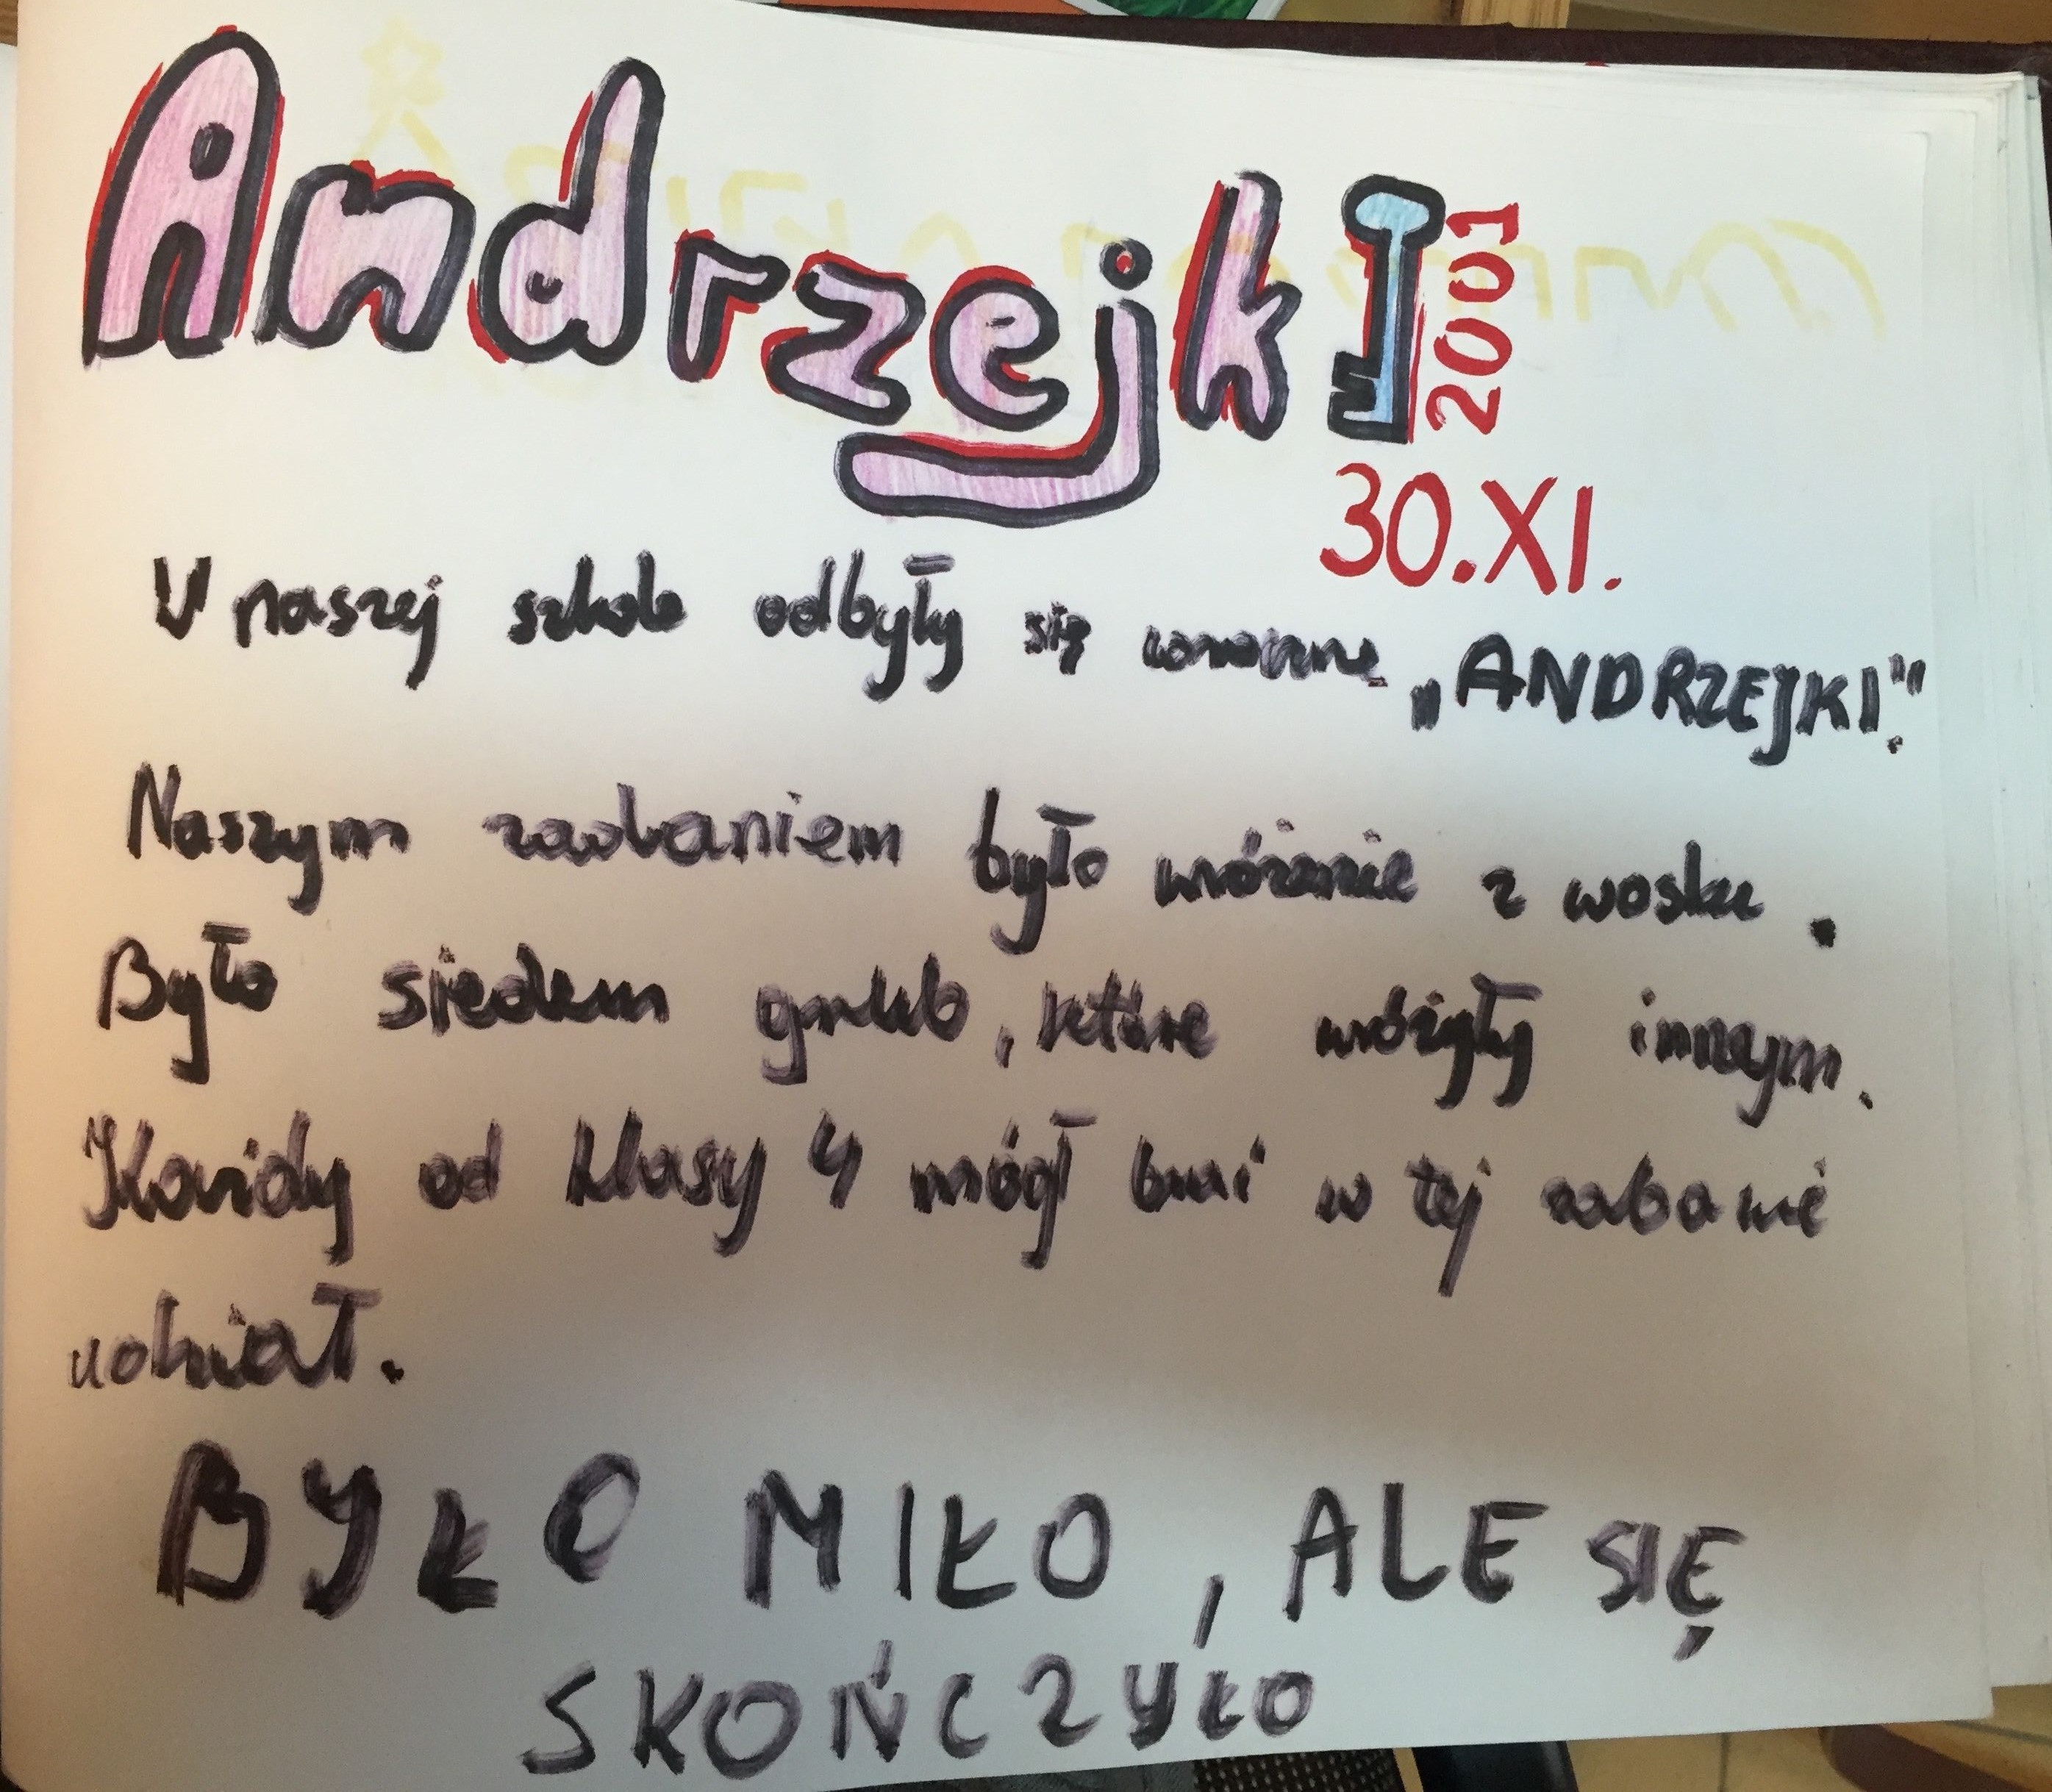 AndrzejkI 2001
30.XI.
W naszej szkole odbyły się "ANDRZEJKI".
Naszym zadaniem było wróżenie z wosku.
Było siedem grup, które wróżyły innym.
Każdy od klasy 4 mógł brać w tej zabawie
udział.
BYŁO MIŁO, ALE SIĘ
SKOŃCZYŁO